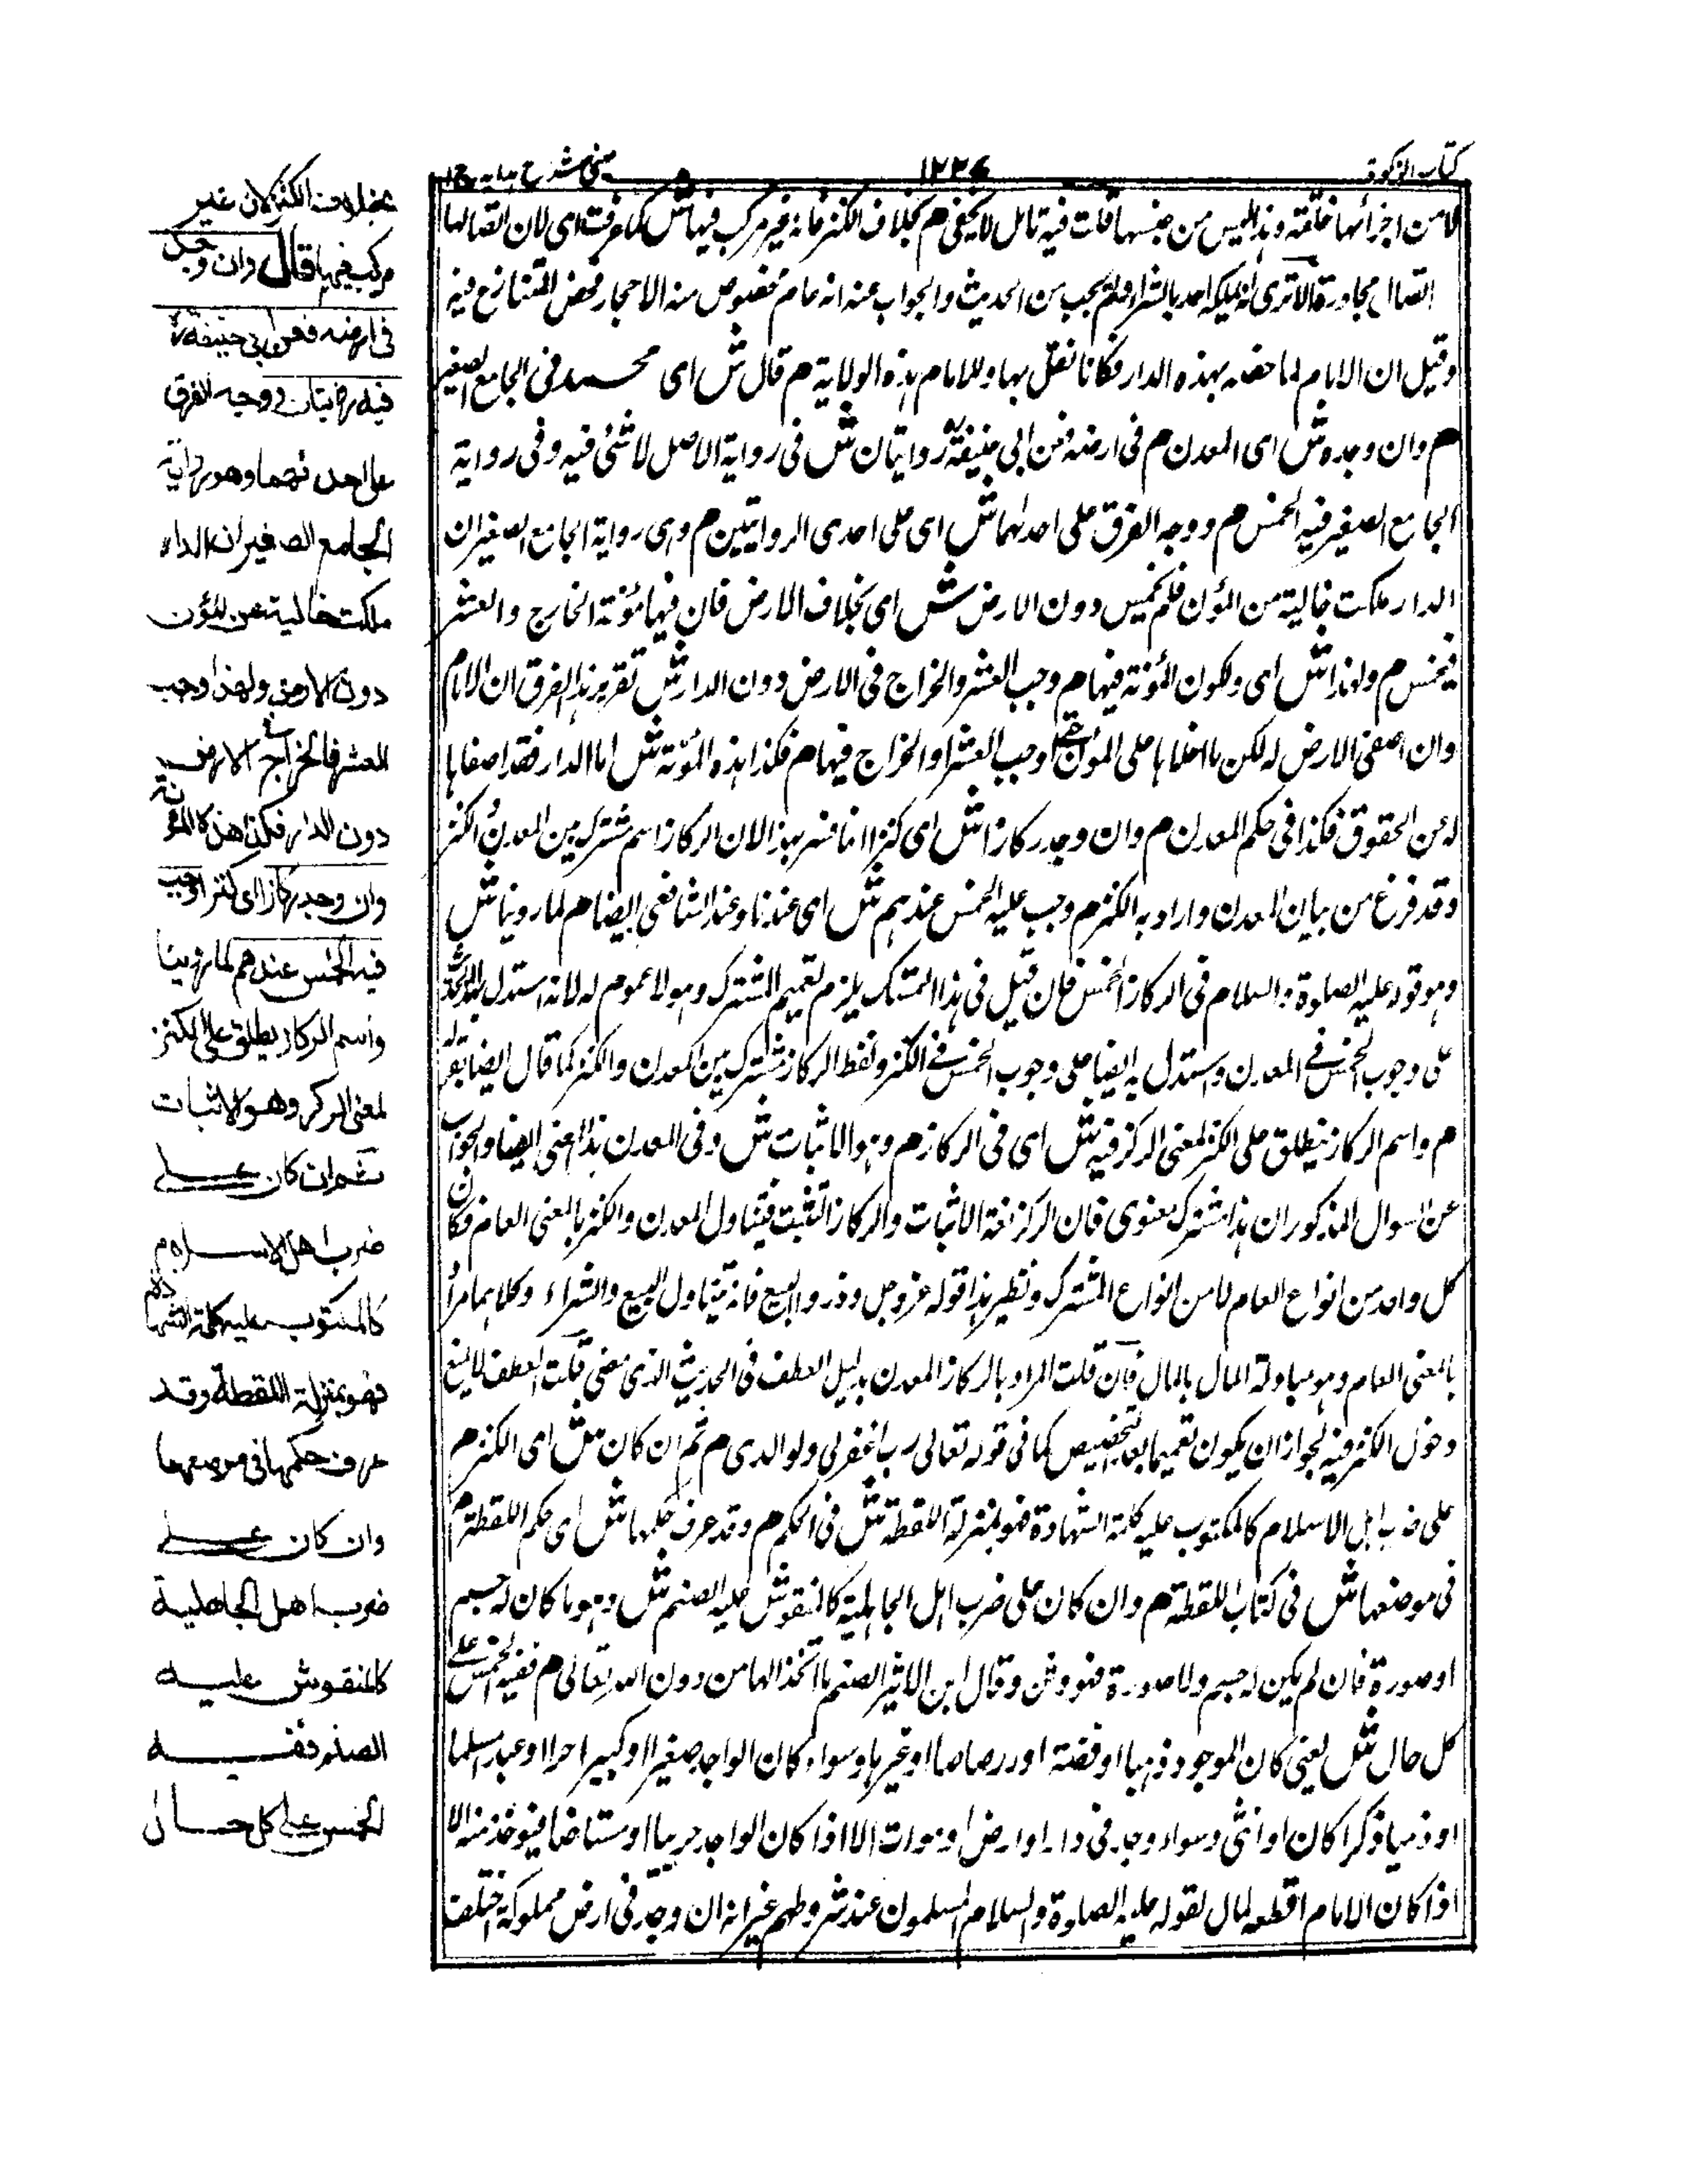 كتاب الزكوة
١٢٣٤
عينى شرح هدايه ج ١
لا من اجزائها خلقة وهذا ليس من جنسها قلت فيه تامل لا يخفى م بخلاف الكنز فانه غير مركب فيها ش كما عرفت اى لان اتصالها
اتصال مجاورة الا ترى انه يملكه احد بالشراء ولم يجب من الحديث والجواب عنه انه عام مخصوص منه الاحجار فخص المتنازع فيه
وقيل ان الامام لما خصه بهذه الدار فكانا نفل بها وللامام هذه الولاية م قال ش اى محمد فى الجامع الصغير
م وان وجده ش اى المعدن م فى ارضه فعن ابى حنيفة روايتان ش فى رواية الاصل لا شئ فيه وفى رواية
الجامع الصغير فيه الخمس م ووجه الفرق على احدهما ش اى على احدى الروايتين م وهى رواية الجامع الصغير ان
الدار ملكت خالية من المؤن فلم يخمس دون الارض ش اى بخلاف الارض فان فيها مؤنة الخارج والعشر
فيخمس م ولهذا ش اى ولكون المؤنة فيها م وجب العشر والخراج فى الارض دون الدار ش تقرير هذا الفرق ان الامام
وان اصفى الارض له لكن ما اخلاها على المؤن حتى اوجب العشر او الخراج فيها م فكذا هذه المؤنة ش اما الدار فقد اصفاها
له عن الحقوق فكذا فى حكم المعدن م وان وجد ركازا ش اى كنزا انما فسر بهذا لان الركاز اسم مشترك بين المعدن والكنز
وقد فرغ من بيان المعدن واراد به الكنز م وجب عليه الخمس عندهم ش اى عندنا وعند الشافعى ايضا م لما روينا ش
وهو قوله عليه الصلوة والسلام فى الركاز الخمس فان قيل فى هذا التمسك يلزم تعميم المشترك وهو لا عموم له لانه استدل بهذا الحديث
على وجوب الخمس فى المعدن واستدل به ايضا على وجوب الخمس فى الكنز ولفظ الركاز مشترك بين المعدن والكنز كما قال ايضا بقوله
م واسم الركاز ينطلق على الكنز لمعنى الركز فيه ش اى فى الركاز م وهو الاثبات ش وفى المعدن هذا المعنى ايضا والجواب
عن السوال المذكور ان هذا مشترك معنوى فان الركز لغة الاثبات والركاز المثبت فيتناول المعدن والكنز بالمعنى العام فكان
كل واحد من انواع العام لا من انواع المشترك ونظير هذا قوله عز وجل وذروا البيع فانه يتناول البيع والشراء وكلاهما مراد
بالمعنى العام وهو مبادلة المال بالمال فان قلت المراد بالركاز المعدن بدليل العطف فى الحديث الذى مضى قلت العطف لا يمنع
دخول الكنز فيه لجواز ان يكون تعميما بعد تخصيص كما فى قوله تعالى رب اغفر لى ولوالدى م ثم ان كان ش اى الكنز م
على ضرب اهل الاسلام كالمكتوب عليه كلمة الشهادة فهو بمنزلة اللقطة ش فى الحكم م وقد عرف حكمها ش اى حكم اللقطة م
فى موضعها ش فى كتاب اللقطة م وان كان على ضرب اهل الجاهلية كالمنقوش عليه الصنم ش وهو ما كان له جسم
او صورة فان لم يكن له جسم ولا صورة فهو وثن وقال ابن الاثير الصنم ما اتخذ الها من دون الله تعالى م ففيه الخمس على
كل حال ش يعنى كان الموجود ذهبا او فضة او رصاصا او غيرها وسواء كان الواجد صغيرا او كبيرا حرا او عبدا مسلما
او ذميا ذكرا كان او انثى وسواء وجد فى دار او ارض او موات الا اذا كان الواجد حربيا او مستامنا فيؤخذ منه الا
اذا كان الامام اقطعه لمال لقوله عليه الصلوة والسلام المسلمون عند شروطهم غير انه ان وجد فى ارض مملوكة اختلف
بخلاف الكنز لانه غير
مركب فيها قال وان وجد
فى ارضه فعن ابى حنيفة رح
فيه روايتان ووجه الفرق
على احدهما وهو رواية
الجامع الصغير ان الدار
ملكت خالية عن المؤن
دون الارض ولهذا وجب
العشر والخراج فى الارض
دون الدار فكذا هذه المؤنة
وان وجد ركازا اى كنزا وجب
فيه الخمس عندهم لما روينا
واسم الركاز يطلق على الكنز
لمعنى الركز وهو الاثبات
ثم ان كان على
ضرب اهل الاسلام
كالمكتوب عليه كلمة الشهادة
فهو بمنزلة اللقطة وقد
عرف حكمها فى موضعها
وان كان على
ضرب اهل الجاهلية
كالمنقوش عليه
الصنم ففيه
الخمس على كل حال